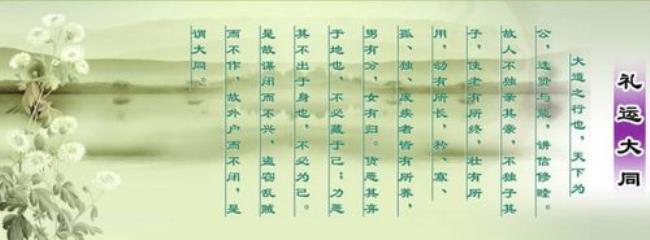 礼运大同
大道之行也，天下为
公，选贤与能，讲信修睦。
故人不独亲其亲，不独子其
子，使老有所终，壮有所
用，幼有所长，矜、寡、
孤、独、废疾者皆有所养，
男有分，女有归。货恶其弃
于地也，不必藏于己；力恶
其不出于身也，不必为己。
是故谋闭而不兴，盗窃乱贼
而不作，故外户而不闭，是
谓大同。